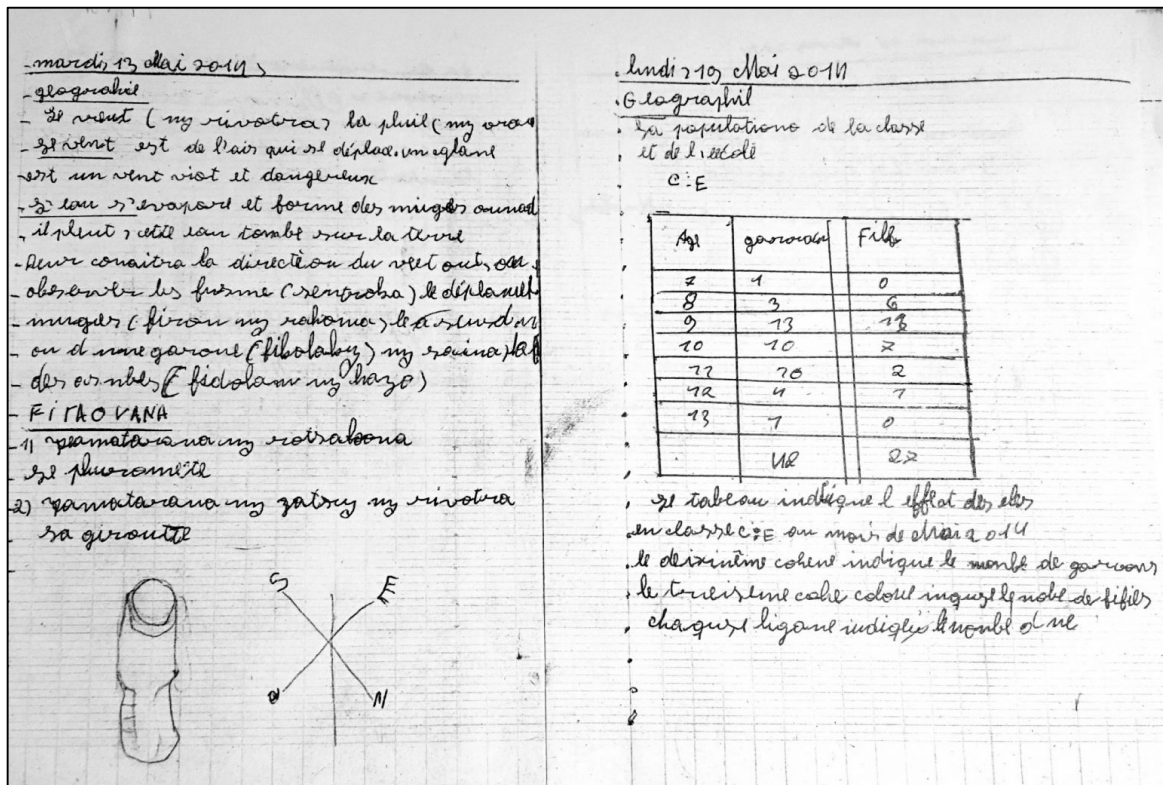 mardi, 13 Mai 2014,
geographie
Le vent (ny rivotra) la pluie (ny orana
Le vent est de l'air qui se déplace. un cglane
est un vent viot et dangereux
L'eau s'evapore et forme des nuages
il pleut, cette eau tombe sur la terre
conaitra la direction du
observer les fusme (sentroka) le déplanet
nuages (firon ny rahona)
ou d'une garoue (fibolaky) ny
des (fidolan ny hazo)
FITAOVANA
1) pamatarana ny rotsakoana
Le pluvramète
2) pamatarana ny zatsy ny rivotra
La giroutte
S
E
O
N
lundi, 19 Mai 2014
Geographie
La populations de la classe
et de l'eecole
C:E
Age garcon Fille
7 1 0
8 3 6
9 13
10 10 7
11 10 2
12 4 1
13 1 0
42 27
Le tableau indique l'effet des eles
en classe C:E au mois de Mai 2014
le deixinème colene indique le nombe de garcons
le treisieme colre colone le nobe de fifiles
chaque ligane le nombe d'ne